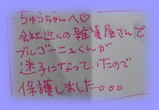 ちゅうちゃんへ♡
会社近くの雑貨屋さんで、
ブルゴーニュくんが
迷子になっていたので
保護しました...。